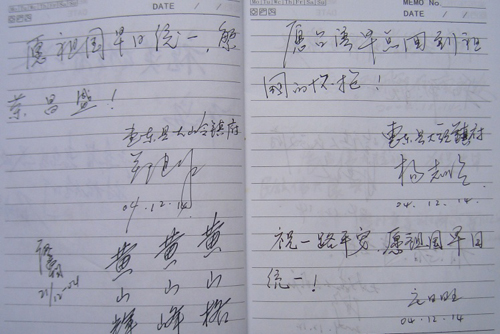 DATE / /
愿祖国早日统一,繁
荣昌盛!
惠东县大岭镇府
04.12.14
黄 黄 黄
山 山 山
峰
MEMO No.
DATE / /
愿台湾早点回到祖
国的怀抱!
惠东县大岭镇府
杨志
04.12.14
祝一路平安 愿祖国早日
统一!
04.12.14